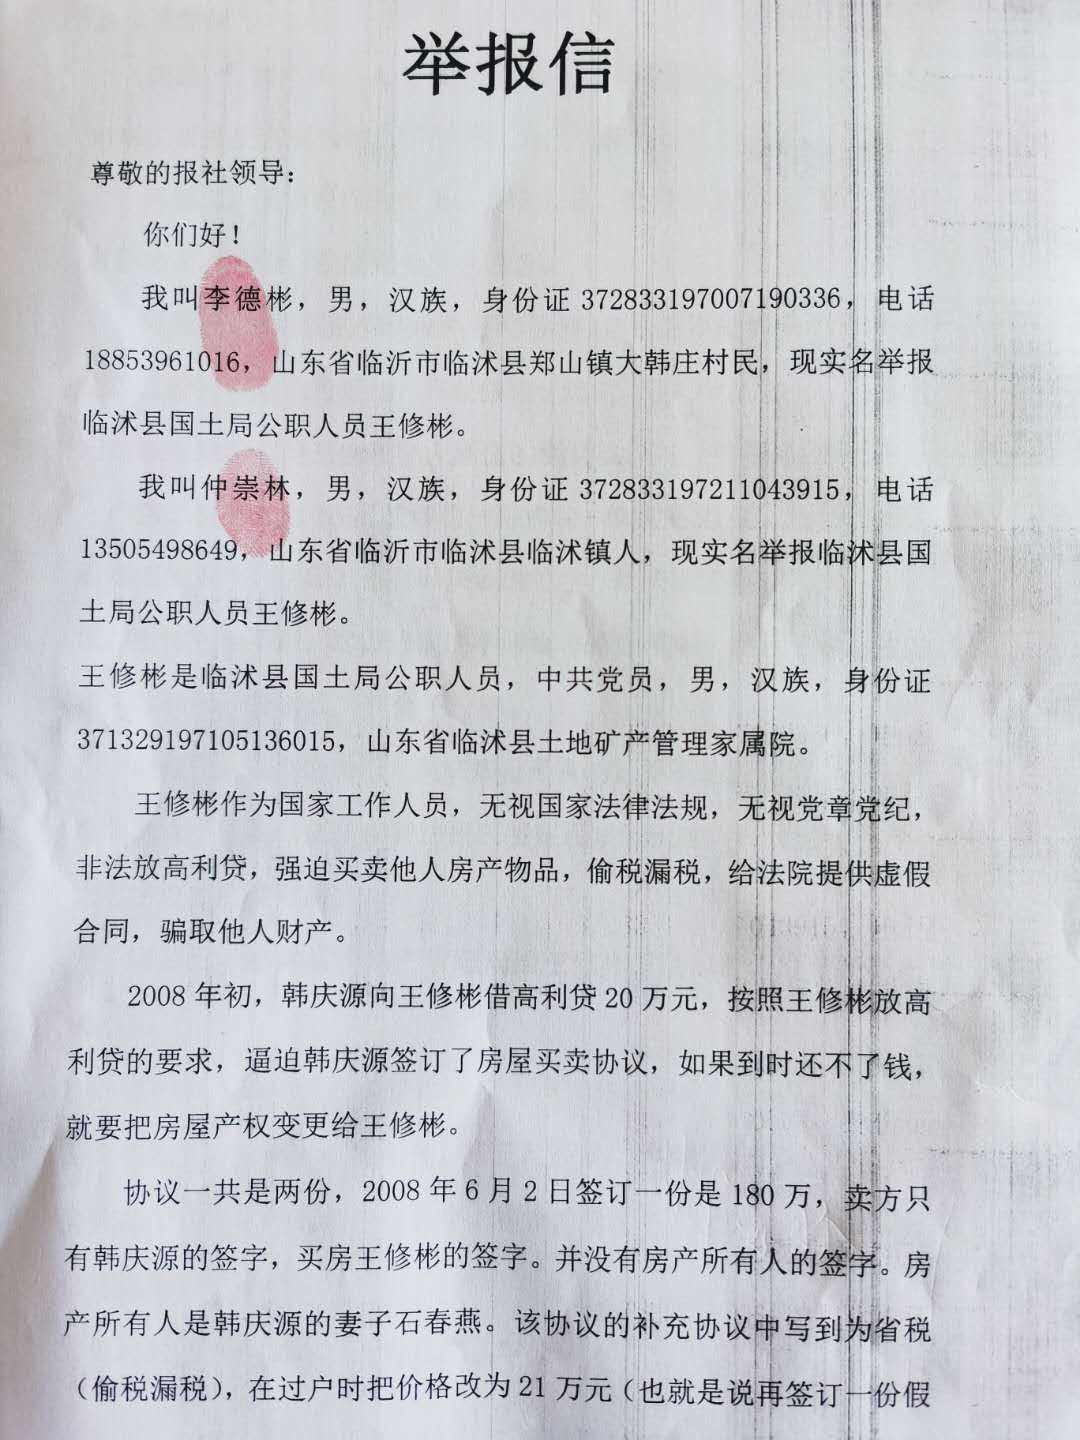 举报信
尊敬的报社领导：
你们好！
我叫李德彬，男，汉族，身份证 372833197007190336，电话
18853961016，山东省临沂市临沭县郑山镇大韩庄村民，现实名举报
临沭县国土局公职人员王修彬。
我叫仲崇林，男，汉族，身份证 372833197211043915，电话
13505498649，山东省临沂市临沭县临沭镇人，现实名举报临沭县国
土局公职人员王修彬。
王修彬是临沭县国土局公职人员，中共党员，男，汉族，身份证
371329197105136015，山东省临沭县土地矿产管理家属院。
王修彬作为国家工作人员，无视国家法律法规，无视党章党纪，
非法放高利贷，强迫买卖他人房产物品，偷税漏税，给法院提供虚假
合同，骗取他人财产。
2008 年初，韩庆源向王修彬借高利贷 20 万元，按照王修彬放高
利贷的要求，逼迫韩庆源签订了房屋买卖协议，如果到时还不了钱，
就要把房屋产权变更给王修彬。
协议一共是两份，2008 年 6 月 2 日签订一份是 180 万，卖方只
有韩庆源的签字，买房王修彬的签字。并没有房产所有人的签字。房
产所有人是韩庆源的妻子石春燕。该协议的补充协议中写到为省税
（偷税漏税），在过户时把价格改为 21 万元（也就是说再签订一份假